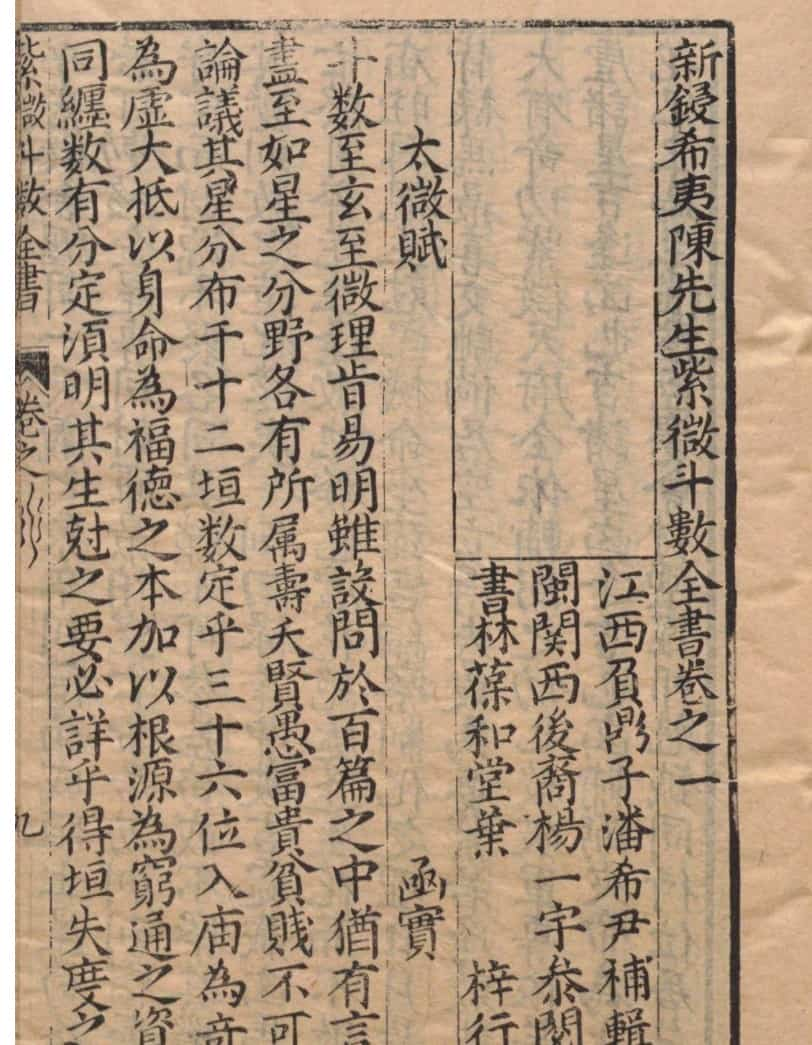 新鋟希夷陳先生紫微斗數全書卷之一
江西負鼎子潘希尹補輯
閩関西後裔楊一宇叅閱
書林葆和堂葉 梓行
太微賦 函實
斗数至玄至微理㫖易明雖設問於百篇之中猶有言
盡至如星之分野各有所属壽夭賢愚富貴貧賤不可
論議其星分布于十二垣数定乎三十六位入庙為竒
為虛大抵以身命為福德之本加以根源為窮通之資
同纏数有分定湏明其生尅之要必詳乎得垣失度之
紫微斗數全書 卷之 九